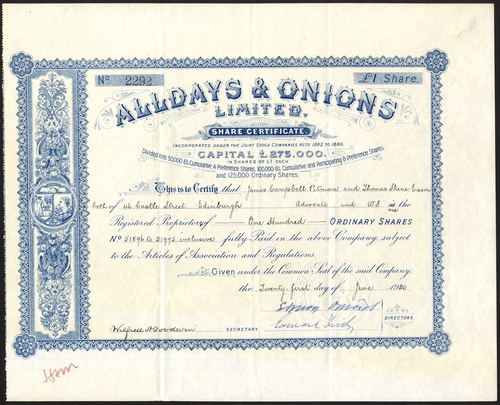 No 2292 £1 Share
ALLDAYS & ONIONS
LIMITED.
SHARE CERTIFICATE.
INCORPORATED UNDER THE JOINT STOCK COMPANIES ACTS 1862 TO 1886.
CAPITAL £275,000.
IN SHARES OF £1 EACH
Divided into 50,000 6% Cumulative A Preference Shares, 100,000 8% Cumulative and Participating B Preference Shares,
and 125,000 Ordinary Shares.
This is to Certify that James Campbell Pitman and Thomas Esson
both of 46 Castle Street Edinburgh Advocate and W.S. is the
are
Registered Proprietors of One Hundred ORDINARY SHARES
No 51896 to 51995 inclusive fully Paid in the above Company subject
to the Articles of Association and Regulations.
Given under the Common Seal of the said Company,
the Twenty first day of June 1920
DIRECTORS
Wilfred H Goodwin SECRETARY